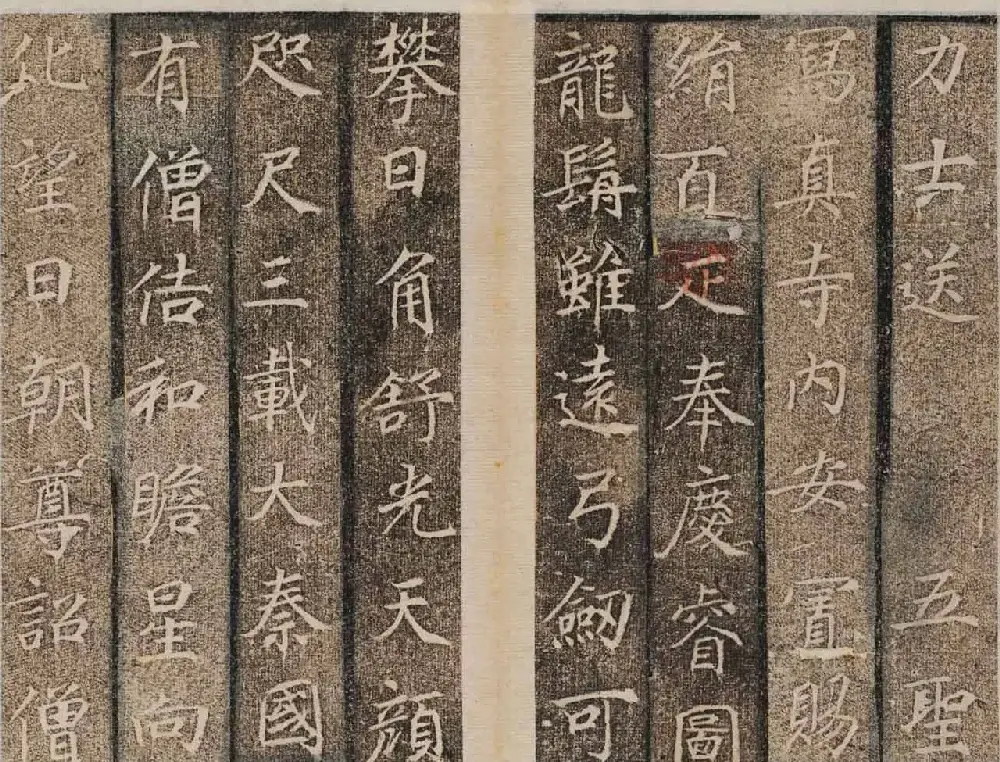 力士送 五聖
寫真寺内安置賜
絹百疋奉慶睿圖
龍髯雖遠弓劒可
攀日角舒光天顔
咫尺三載大秦國
有僧佶和瞻星向
化望日朝尊詔僧